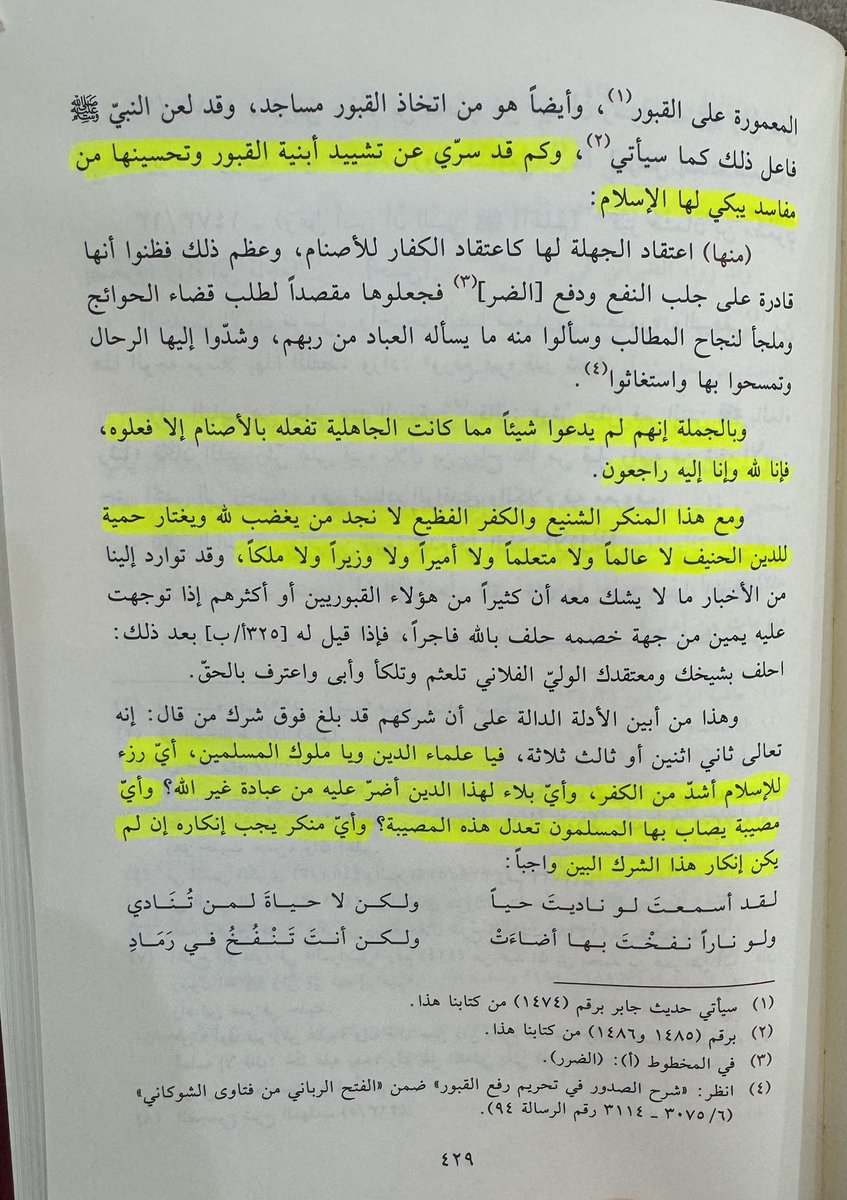 المعمورة على القبور(١)، وأيضاً هو من اتخاذ القبور مساجد، وقد لعن النبيّ ﷺ
فاعل ذلك كما سيأتي(٢)، وكم قد سرّي عن تشييد أبنية القبور وتحسينها من
مفاسد يبكي لها الإسلام:
(منها) اعتقاد الجهلة لها كاعتقاد الكفار للأصنام، وعظم ذلك فظنوا أنها
قادرة على جلب النفع ودفع [الضر](٣) فجعلوها مقصداً لطلب قضاء الحوائج
وملجأ لنجاح المطالب وسألوا منه ما يسأله العباد من ربهم، وشدّوا إليها الرحال
وتمسحوا بها واستغاثوا(٤).
وبالجملة إنهم لم يدعوا شيئاً مما كانت الجاهلية تفعله بالأصنام إلا فعلوه،
فإنا لله وإنا إليه راجعون.
ومع هذا المنكر الشنيع والكفر الفظيع لا نجد من يغضب لله ويغتار حمية
للدين الحنيف لا عالماً ولا متعلماً ولا أميراً ولا وزيراً ولا ملكاً، وقد توارد إلينا
من الأخبار ما لا يشك معه أن كثيراً من هؤلاء القبوريين أو أكثرهم إذا توجهت
عليه يمين من جهة خصمه حلف بالله فاجراً، فإذا قيل له [٣٢٥أ/ب] بعد ذلك:
احلف بشيخك ومعتقدك الوليّ الفلاني تلعثم وتلكأ وأبى واعترف بالحقّ.
وهذا من أبين الأدلة الدالة على أن شركهم قد بلغ فوق شرك من قال: إنه
تعالى ثاني اثنين أو ثالث ثلاثة، فيا علماء الدين ويا ملوك المسلمين، أيّ رزء
للإسلام أشدّ من الكفر، وأيّ بلاء لهذا الدين أضرّ عليه من عبادة غير الله؟ وأيّ
مصيبة يصاب بها المسلمون تعدل هذه المصيبة؟ وأيّ منكر يجب إنكاره إن لم
يكن إنكار هذا الشرك البين واجباً:
لقد أسمعتَ لو ناديتَ حياً ولكن لا حياةَ لمن تُنَادي
ولو ناراً نفخْتَ بها أضاءَتْ ولكن أنتَ تَنْفُخُ في رَمَادِ
(١) سيأتي حديث جابر برقم (١٤٧٤) من كتابنا هذا.
(٢) برقم (١٤٨٥ و١٤٨٦) من كتابنا هذا.
(٣) في المخطوط (أ): (الضرر).
(٤) انظر: «شرح الصدور في تحريم رفع القبور» ضمن «الفتح الرباني من فتاوى الشوكاني»
(٦/ ٣٠٧٥ ـ ٣١١٤ رقم الرسالة ٩٤).
٤٢٩